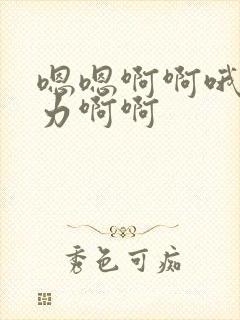 嗯嗯啊啊哦
力啊啊
秀色可痴